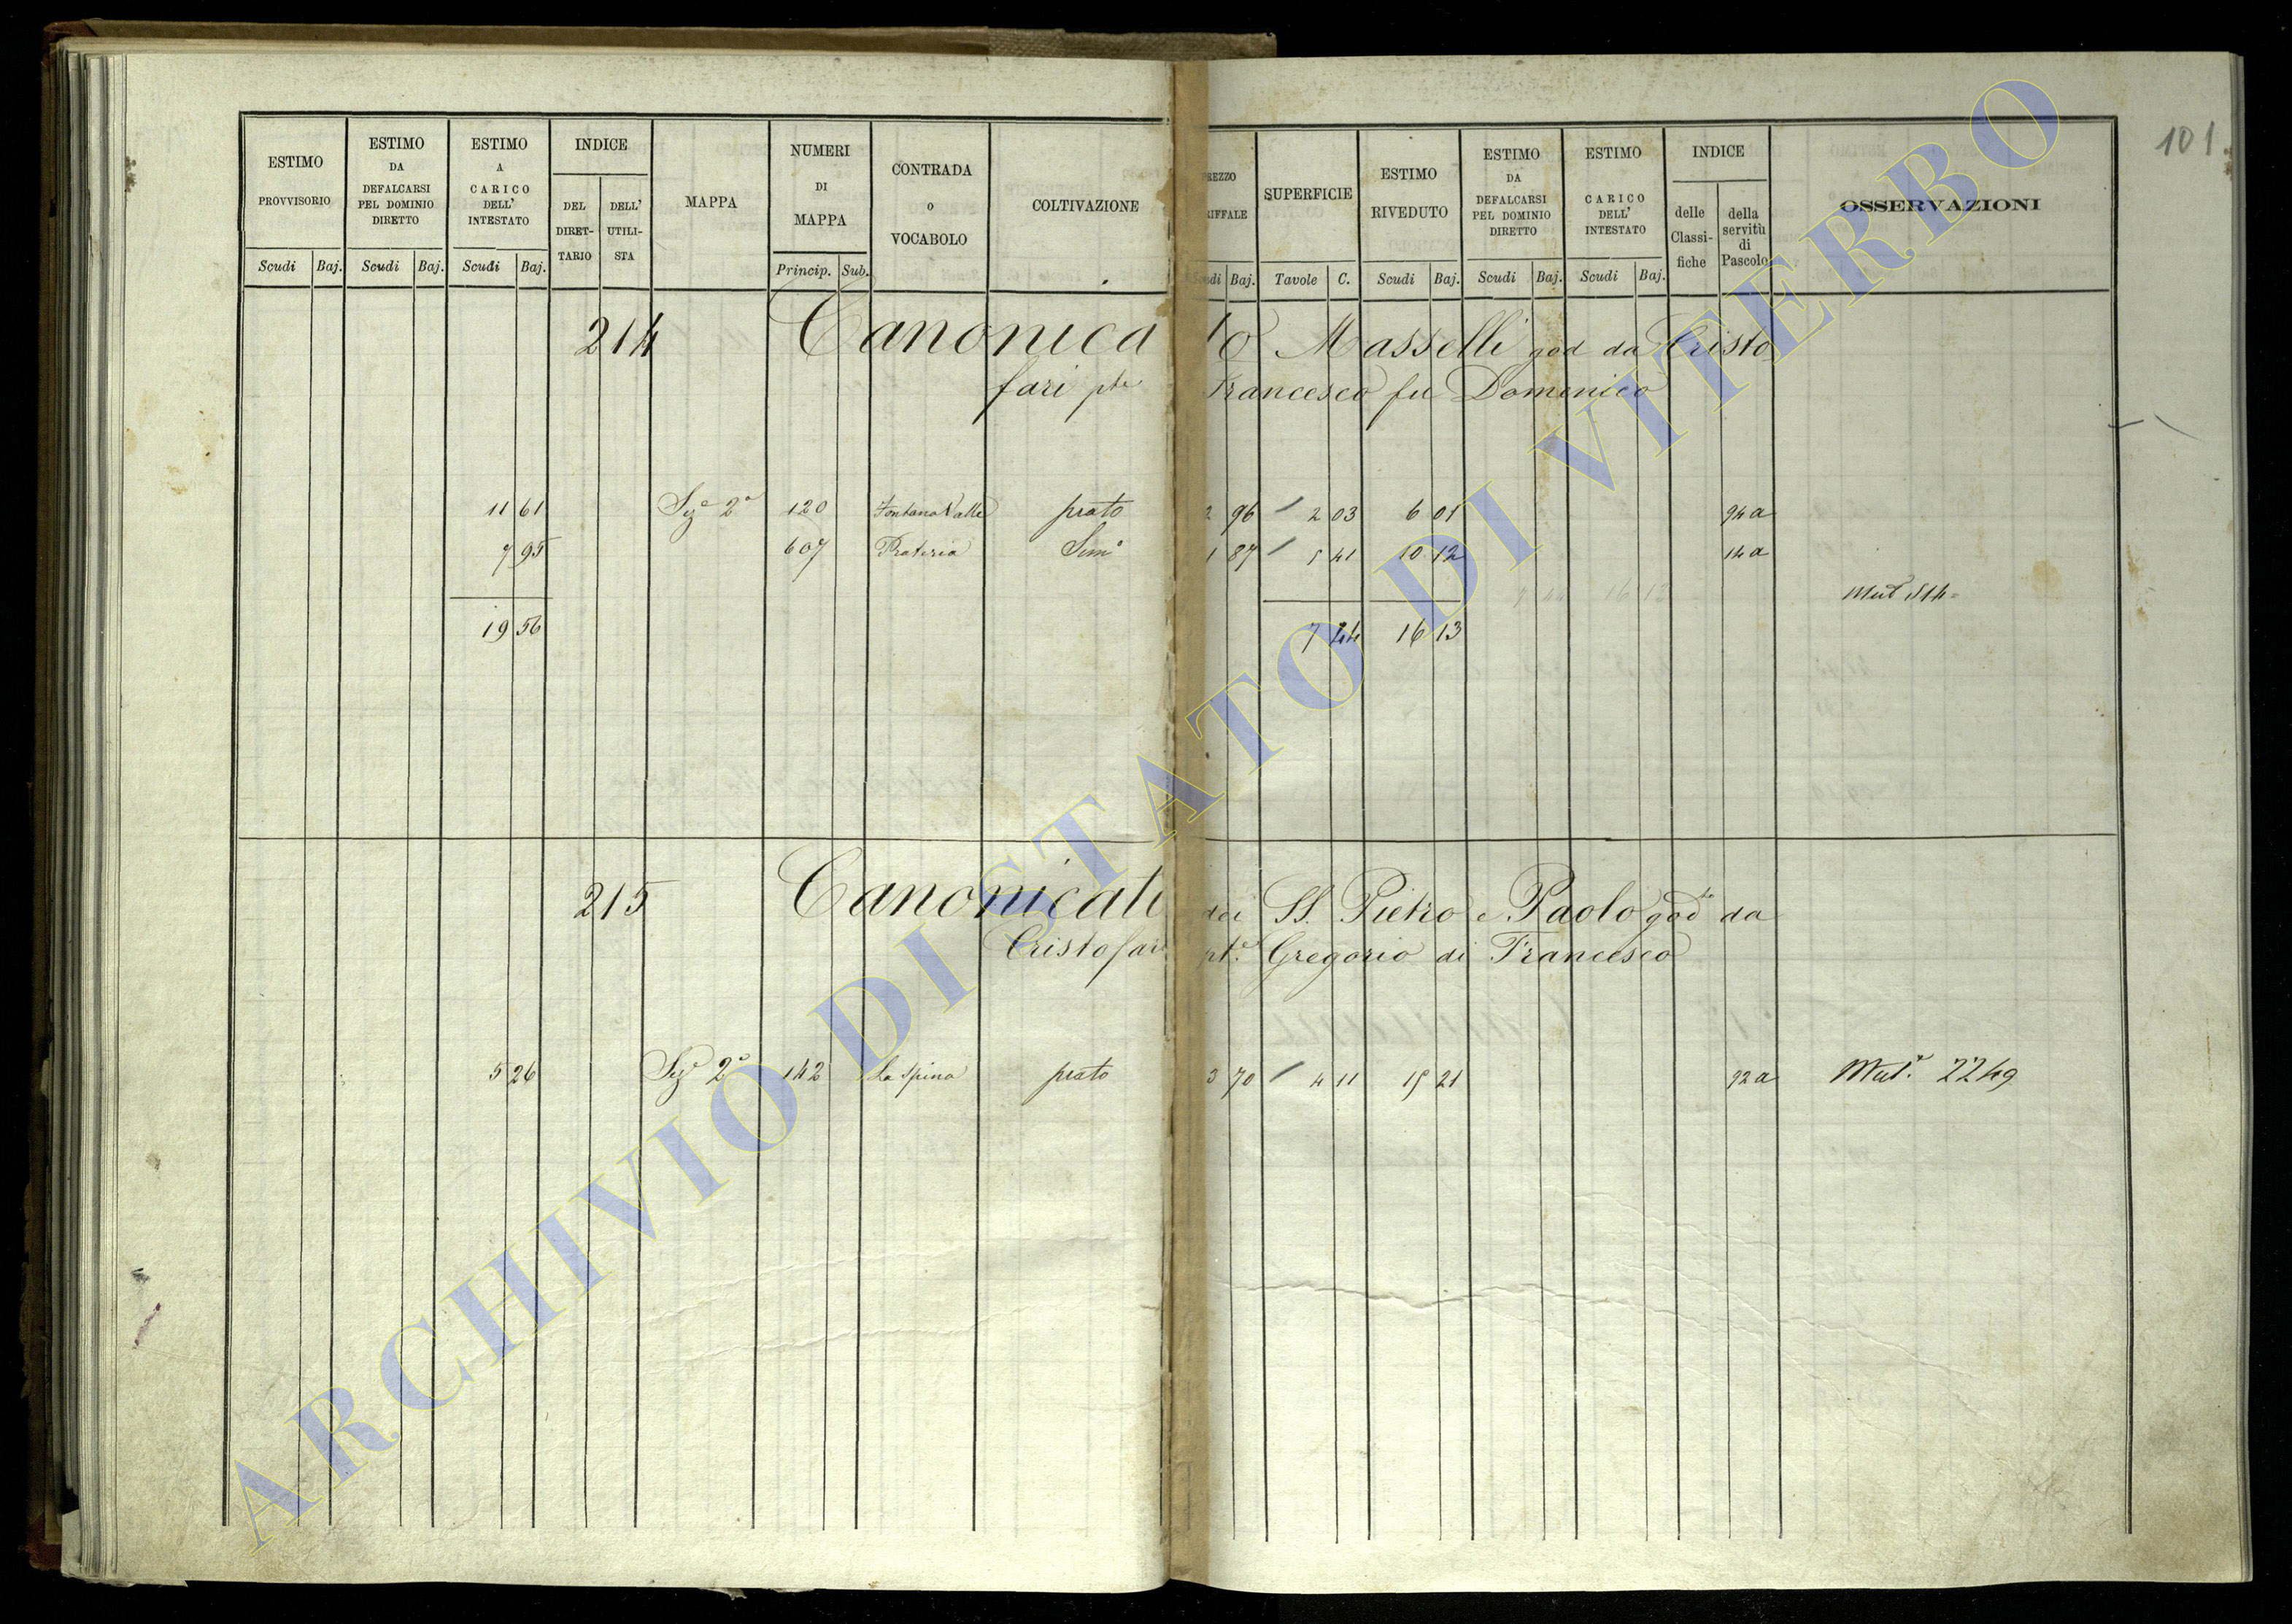 101
ESTIMO PROVVISORIO
Scudi Baj.
ESTIMO DA DEFALCARSI PEL DOMINIO DIRETTO
Scudi Baj.
ESTIMO A CARICO DELL' INTESTATO
Scudi Baj.
INDICE
DEL DIRET-TARIO
DELL' UTILI-STA
MAPPA
NUMERI DI MAPPA
Princip. Sub.
CONTRADA o VOCABOLO
COLTIVAZIONE
REZZO
RIFFALE
Baj.
SUPERFICIE
Tavole C.
ESTIMO RIVEDUTO
Scudi Baj.
ESTIMO DA DEFALCARSI PEL DOMINIO DIRETTO
Scudi Baj.
ESTIMO CARICO DELL' INTESTATO
Scudi Baj.
INDICE
delle Classi-fiche
della servitù di Pascolo
OSSERVAZIONI
214 Canonicato Masselli god da Cristo
fari pte Francesco fu Domenico
11 61 Sez.e 2a 120 Fontana Valle prato 2 96 / 2 03 6 01 94a
7 95 607 Prateria Sem.o 1 87 / 5 41 10 12 14a
Mut 814
19 56 7 44 16 13
215 Canonicati dei SS. Pietro e Paolo god.to da
Cristofari pt.e Gregorio di Francesco
5 26 Sez.e 2a 142 La Spina prato 3 70 / 4 11 15 21 92a Mut.a 2249
ARCHIVIO DI STATO DI VITERBO